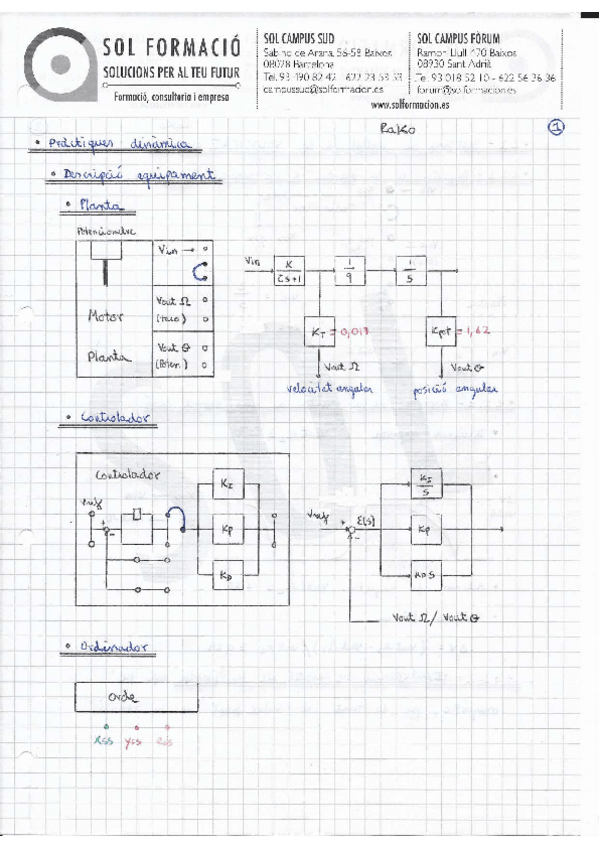 SOL FORMACIÓ
SOLUCIONS PER AL TEU FUTUR
Formació, consultoria i empresa
SOL CAMPUS SUD
Sabino de Arana, 56-58 Baixos
08028 Barcelona
Tel. 93 190 82 42 - 622 23 53 53
campussud@solformacion.es
SOL CAMPUS FÒRUM
Ramon Llull 470 Baixos
08930 Sant Adrià
Te. 93 018 52 10 - 622 56 36 36
forum@solformacion.es
www.solformacion.es
Rako
1
• Pràctiques dinàmica
• Descripció equipament
• Planta
Potenciometre
Vin →
Vout Ω
(taco)
Vout θ
(Poten.)
Motor
Planta
Vin
K
τs+1
1
9
1
s
KT = 0,013
Kpot = 1,62
Vout Ω
Vout θ
velocitat angular
posició angular
• Controlador
Controlador
Vref
+
-
KI
Kp
KD
Vref
+
-
E(s)
KI
s
Kp
KD S
Vout Ω / Vout θ
• Ordinador
Orde
RSS
YSS